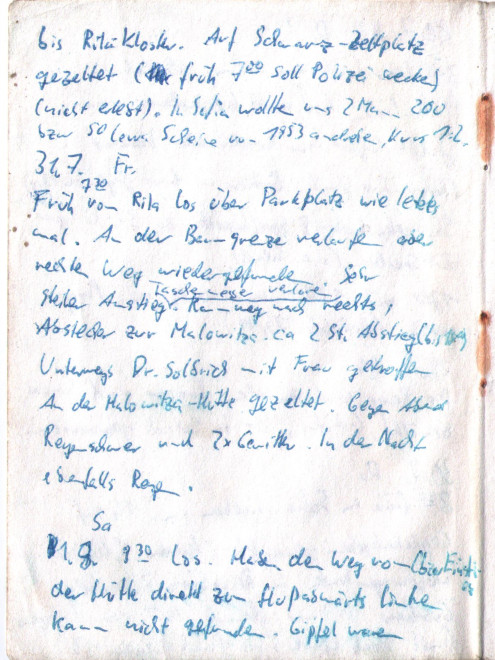 bis Rila Kloster. Auf Schwarz-Zeltplatz
gezeltet (früh 7⁰⁰ soll Polizei wecken)
(nicht erlebt). In Sofia wollten uns 2 Mann 200
bzw 50 Lewa Scheine von 1953 andrehen, Kurs 1:2.
31.7. Fr.
7³⁰
Früh vom Rila los über Parkplatz wie letztes
mal. An der Baumgrenze verlaufen aber
rechten Weg wiedergefunden. Sehr
Taschenmesser verloren
steiler Anstieg. Kammweg nach rechts,
Abstecher zur Malowitza. ca 2 St. Abstieg
Unterwegs Dr. mit Frau getroffen
An der Malowitza-Hütte gezeltet. Gegen Abend
Regenschauer und 2x Gewitter. In der Nacht
ebenfalls Regen.
Sa
1.8. 8³⁰ los. Haben den Weg von
der Hütte direkt zum flußabwärts linken
Kamm nicht gefunden. Gipfel waren